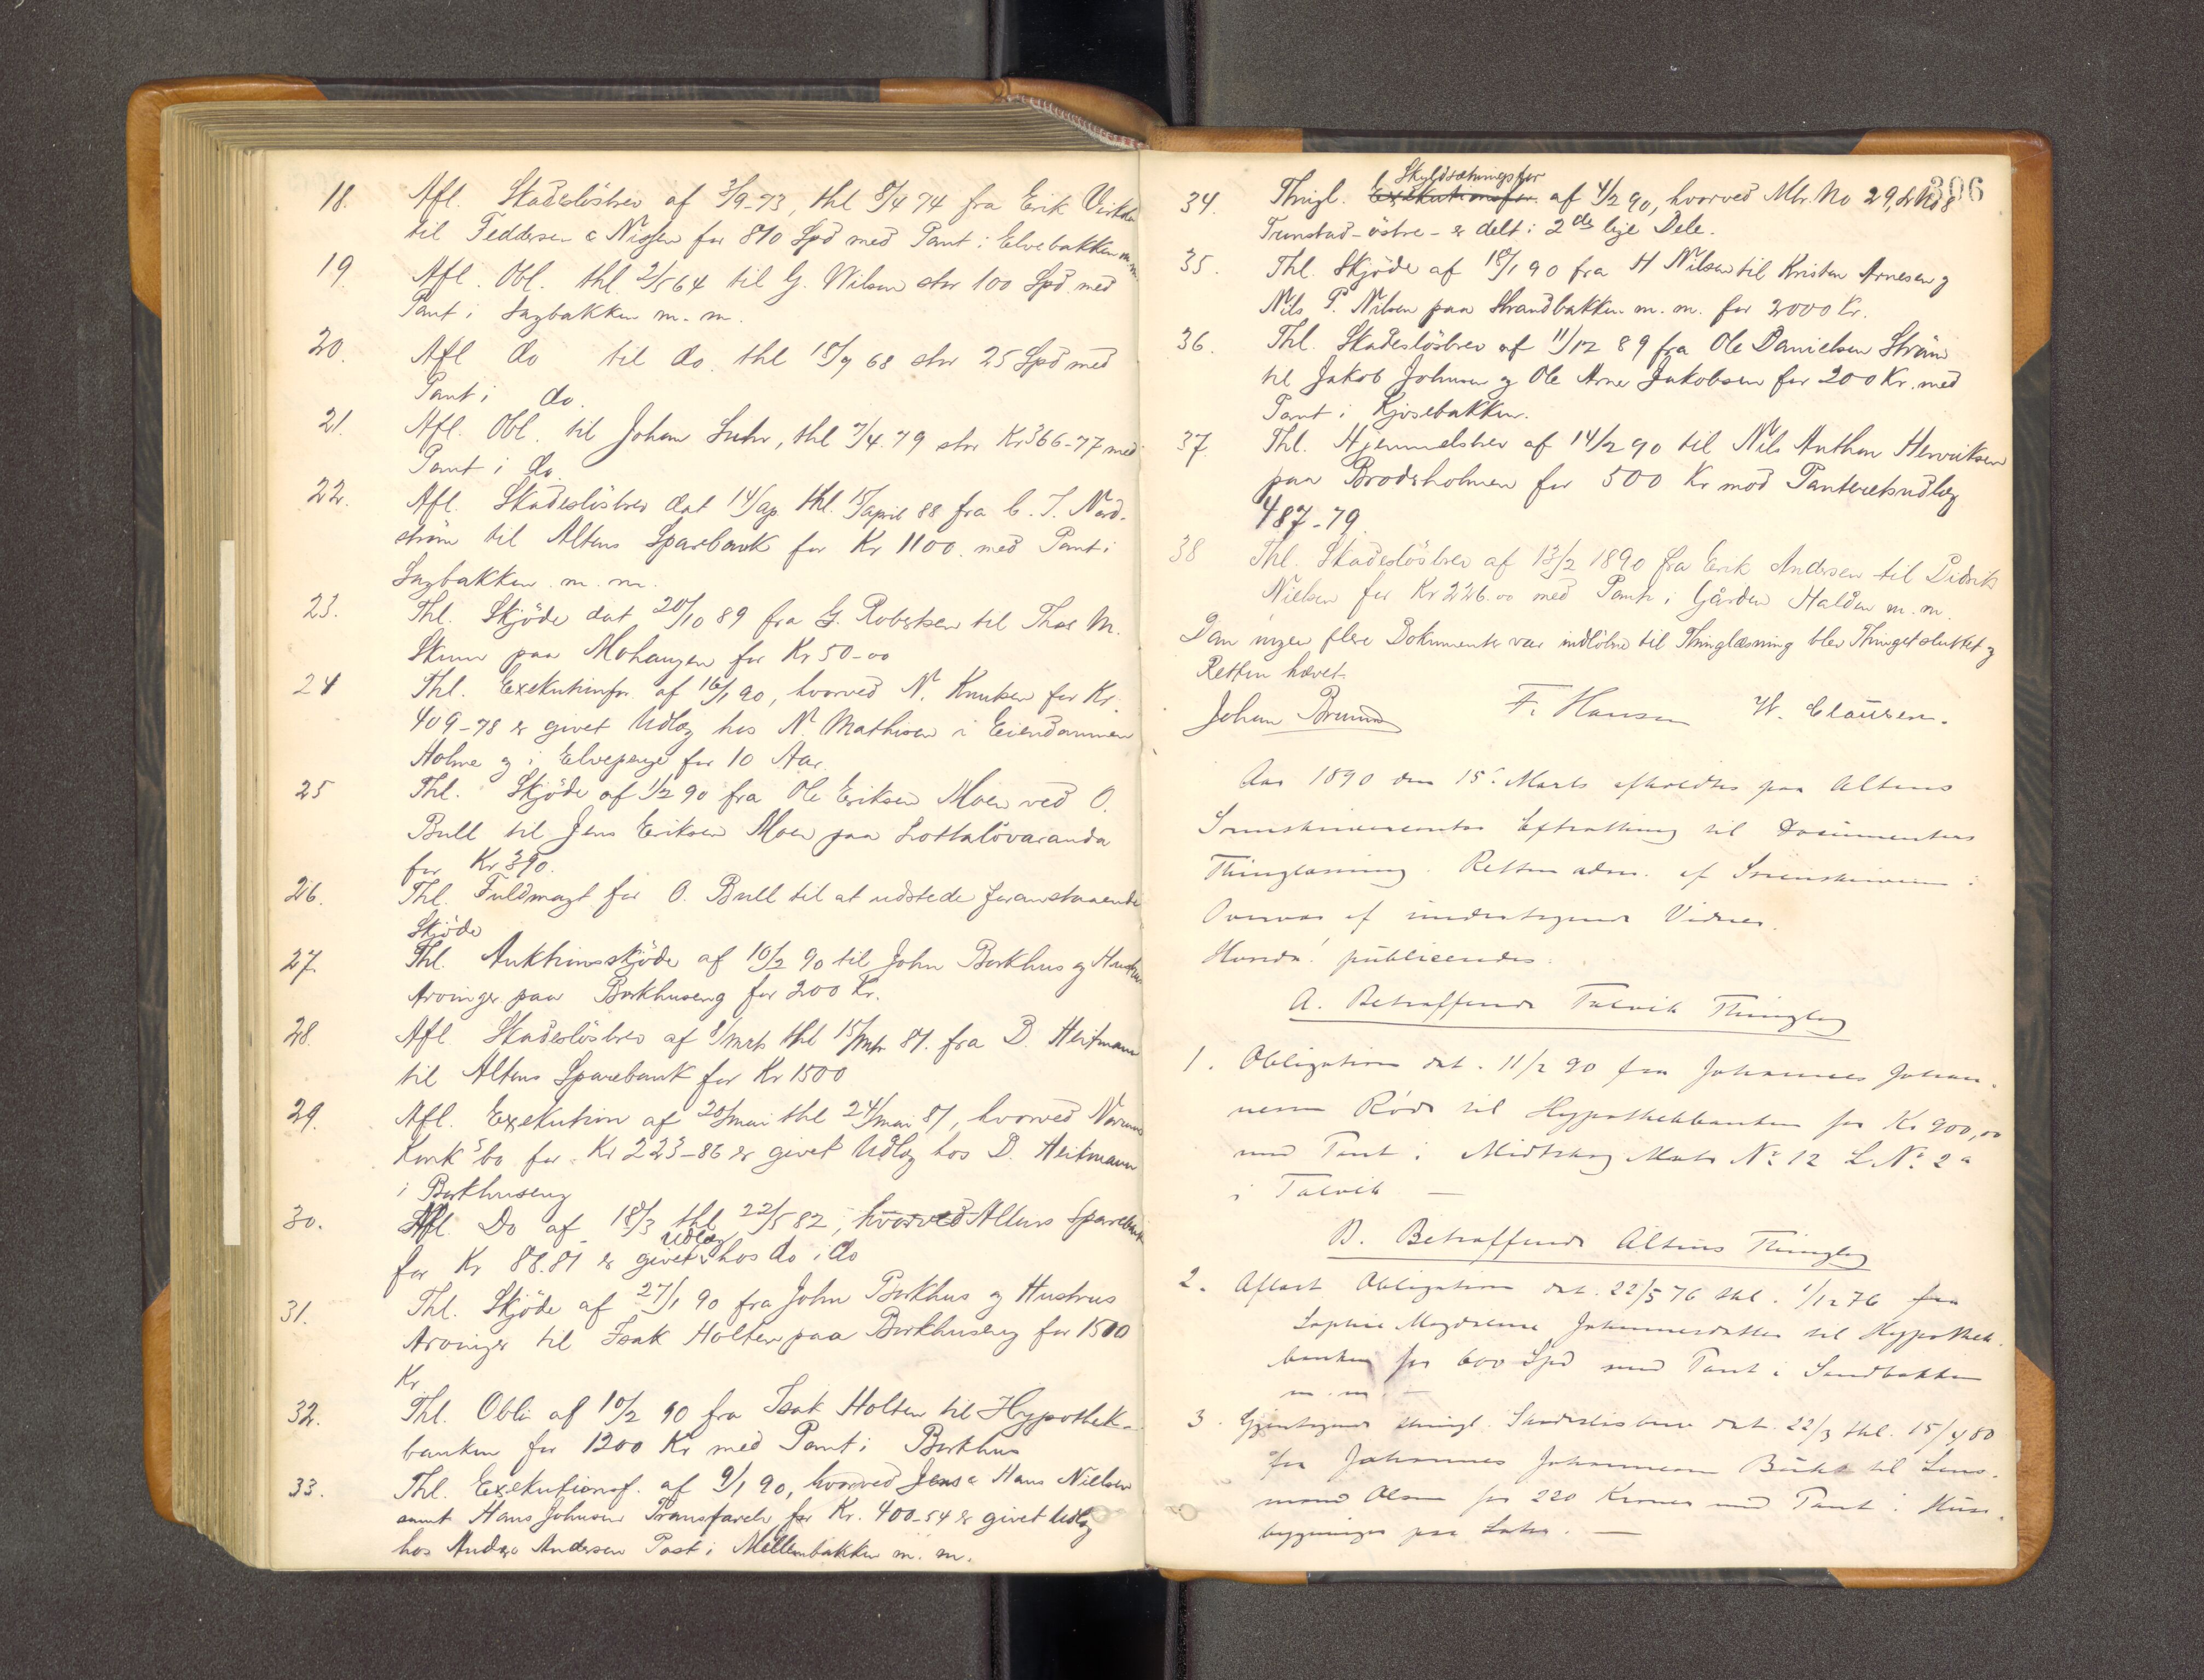 18. Afl. Skadesløsbrev af 3/9-73, thl 8/4 74 fra Erik
til Feddersen & Nissen for 810 Spd med Pant i Elvebakken m.m.
19. Afl. Obl. thl. 2/5 64 til G. Nilsen stor 100 Spd. med
Pant i Sagbakken m. m.
20. Afl do til do. thl 18/9 68 stor 25 Spd med
Pant i do.
21. Afl. Obl. til Johan Suhr, thl 7/4. 79 stor Kr 366-77 med
Pant i do.
22. Afl. Skadesløsbrev dat 14/ap. thl. 15/april 88 fra C. J. Nord-
strøm til Altens Sparebank for Kr 1100. med Pant i
Sagbakken. m. m.
23. Thl. Skjöde dat 20/10 89 fra G. Robertsen til Thos M.
paa Mohaugen for Kr 50-00
24 Thl. Exekutionsfor. af 16/1 90, hvorved N. Knutsen for Kr.
409-78 er givet Udlæg hos N. Mathisen i Eiendommen
Holme og i Elvepenge for 10 Aar.
25 Thl. Skjöde af 1/2 90 fra Ole Eriksen Moen ved O.
Bull til Jens Eriksen Moen paa Lottalövaranda
for Kr 390.
26. Thl. Fuldmagt for O. Bull til at udstede foranstaaende
Skjöde
27. Thl. Auktionsskjöde af 10/2 90 til John Borkhus og Hustrus
Arvinger paa Borkhuseng for 200 Kr.
28. Afl. Skadesløsbrev af 8/mrts thl 15/mrts 81. fra D. Heitmann
til Altens Sparebank for Kr 1500
29. Afl. Exekution af 20/mai thl 24/mai 81, hvorved
Konk's bo for Kr 223-86 er givet Udlæg hos D. Heitmann
i Borkhuseng
30. Afl. Do af 18/3 thl 22/5 82, hvorved Altens Sparebank
for Kr 88.81 er givet Udlæg hos do i do
31. Thl. Skjöde af 27/1 90 fra John Borkhus og Hustrus
Arvinger til Isak Holten paa Borkhuseng for 1500
Kr
32. Thl. Obli af 10/2 90 fra Isak Holten til Hypothek-
banken for 1200 Kr med Pant i Borkhus
33. Thl. Exekutionsf. af 9/1 90, hvorved Jens & Hans Nielsen
samt Hans Johnsen for Kr. 400-54 er givet Udlæg
hos Anders Andersen Post i Mellembakken m. m.
306
34. Thingl. Exekutionsfor. Skyldsætningsfor af 4/2 90, hvorved Mtr. No 29, LNo 8
östre - er delt i 2de lige Dele.
35. Thl. Skjöde af 18/1 90 fra H Nilsen til Kristen Arnesen og
Nils P. Nilsen paa Strandbakken m. m. for 2000 Kr.
36. Thl. Skadeslösbrev af 11/12 89 fra Ole Danielsen Ström
til Jakob Johnsen og Ole Arne Jakobsen for 200 Kr. med
Pant i Kjosebakken.
37. Thl. Hjemmelsbrev af 14/2 90 til Nils Anthon Henriksen
paa Brodsholmen for 500 Kr mod Panteretsudlæg
487-79.
38 Thl. Skadeslösbrev af 13/2 1890 fra Erik Andersen til Didrik
Nielsen for Kr 226.00 med Pant i Gården Halden m. m.
Da ingen flere Dokumenter var indløbne til Thinglæsning blev Thinget sluttet og
Retten hævet.
Johan F. Hansen W. Clausen.
Aar 1890 den 15. Marts afholdtes paa Altens
Sorenskrivercontor Extrathing til Documenters
Thinglæsning. Retten adm. af Sorenskriveren i
Overvær af undertegnede Vidner.
Hvorda: publicerdes:
A. Betræffende Talvik Thinglag
1. Obligation dat. 11/2 90 fra Johannes Johan-
nesen til Hypothekbanken for Kr 900,00
med Pant i Midtskog Matr No 12 L.No 2a
i Talvik —
B. Betræffende Altens Thinglag
2. Aflæst Obligation dat. 22/5 76 thl. 1/12 76 fra
Sophie Magdalena Johannesdatter til Hypothek-
banken for 600 Spd med Pant i Sandbakken
m. m. —
3. Gjentagende thingl. Skadesløsbrev dat. 22/3 thl. 15/4 80
fra Johannes Johannesen til Lens-
mand Olsen for 220 Kroner med Pant i Huse-
bygninger paa